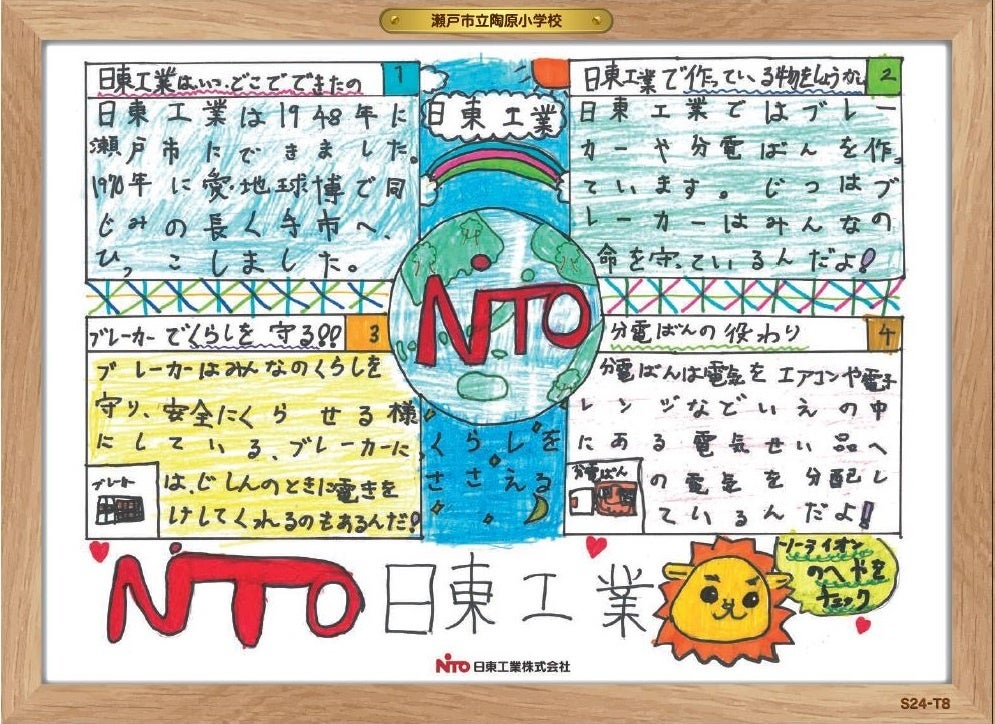 瀬戸市立陶原小学校
日東工業はいつ、どこでできたの
1
日東工業は1948年に
瀬戸市にできました。
1970年に愛・地球博で同
じみの長く手市へ、
ひっこしました。
日東工業
日東工業で作っている物をしょうかい
2
日東工業ではブレー
カーや分電ばんを作っ
ています。じつはブ
レーカーはみんなの
命を守っているんだよ!
NITO
ブレーカーでくらしを守る!!
3
ブレーカーはみんなのくらしを
守り、安全にくらせる様
にしている、ブレーカーに
は、じしんのときに電きを
けしてくれるのもあるんだ!
くらしを
ささえる
分電ばんの役わり
4
分電ばんは電気をエアコンや電子
レンジなどいえの中
にある電気せい品へ
の電気を分配し
ているんだよ!
分電ばん
NITO日東工業
ソーライオン
のへやを
チェック
NITO 日東工業株式会社
S24-T8